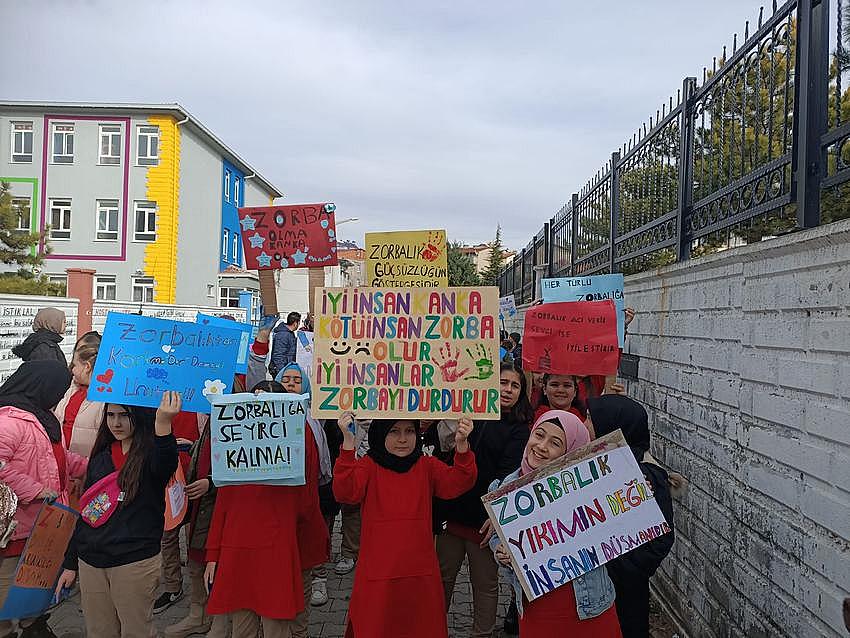 ZORBA
OLMA
KANKA
OL
ZORBALIK
GÜÇSÜZLÜĞÜN
GÖSTERGESİDİR
HER TÜRLÜ
İYİ İNSAN KANKA
KÖTÜ İNSAN ZORBA
OLUR
İYİ İNSANLAR
ZORBAYI DURDURUR
ZORBALIK ACI VERİR
SEVGİ İSE
İYİLEŞTİRİR
Zorbalıktan
ZORBALIĞA
SEYİRCİ
KALMA!
ZORBALIK
YIKIMIN DEĞİL
İNSANIN DÜŞMANIDIR
İSTİKLAL